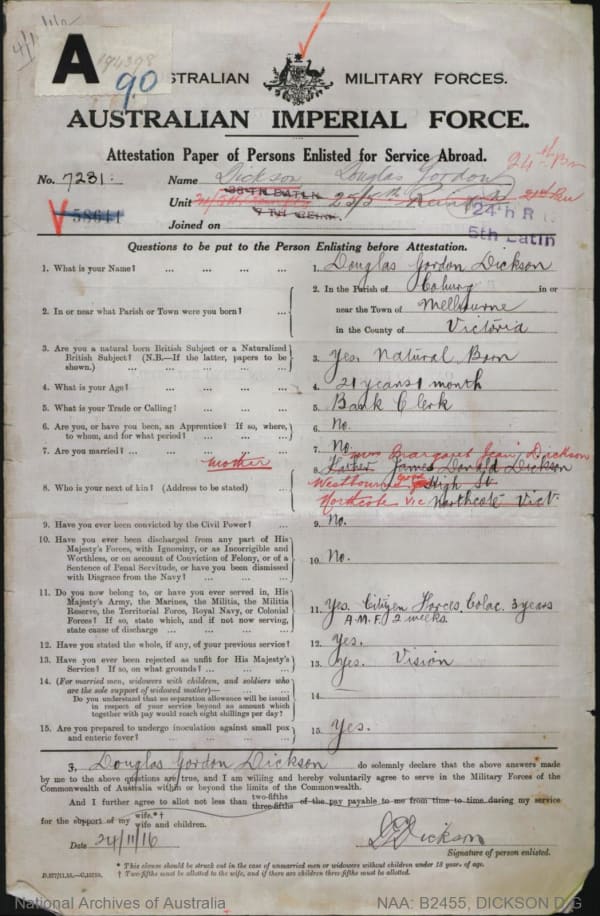 A
194398
90
AUSTRALIAN MILITARY FORCES.
AUSTRALIAN IMPERIAL FORCE.
Attestation Paper of Persons Enlisted for Service Abroad.
24th Bn
No. 7231. Name Dickson Douglas Gordon
Unit 25/5th Reinfts 21st Rein
24th R
5th Batln
58641
Joined on
Questions to be put to the Person Enlisting before Attestation.
1. What is your Name? ... ... ... 1. Douglas Gordon Dickson
2. In or near what Parish or Town were you born? ... 2. In the Parish of Coburg in or
near the Town of Melbourne
in the County of Victoria
3. Are you a natural born British Subject or a Naturalized
British Subject? (N.B.—If the latter, papers to be
shown.) ... ... ... ... 3. Yes. Natural Born
4. What is your Age? ... ... ... 4. 21 years 1 month
5. What is your Trade or Calling? ... ... 5. Bank Clerk
6. Are you, or have you been, an Apprentice? If so, where,
to whom, and for what period? ... ... 6. No.
7. Are you married? ... ... ... 7. No.
Mother Mrs Margaret Jean Dickson
8. Who is your next of kin? (Address to be stated) ... 8. Father James Donald Dickson
Westbourne Grove High St
Northcote Vic Northcote Vict.
9. Have you ever been convicted by the Civil Power? ... 9. No.
10. Have you ever been discharged from any part of His
Majesty's Forces, with Ignominy, or as Incorrigible and
Worthless, or on account of Conviction of Felony, or of a
Sentence of Penal Servitude, or have you been dismissed
with Disgrace from the Navy? ... ... 10. No.
11. Do you now belong to, or have you ever served in, His
Majesty's Army, the Marines, the Militia, the Militia
Reserve, the Territorial Force, Royal Navy, or Colonial
Forces? If so, state which, and if not now serving,
state cause of discharge ... ... ... 11. Yes. Citizen Forces, Colac. 3 years
A.M.F. 2 weeks.
12. Have you stated the whole, if any, of your previous service? 12. Yes.
13. Have you ever been rejected as unfit for His Majesty's
Service? If so, on what grounds? ... ... 13. Yes. Vision
14. (For married men, widowers with children, and soldiers who
are the sole support of widowed mother)—
Do you understand that no separation allowance will be issued
in respect of your service beyond an amount which
together with pay would reach eight shillings per day? 14.
15. Are you prepared to undergo inoculation against small pox
and enteric fever? ... ... ... 15. Yes.
I, Douglas Gordon Dickson do solemnly declare that the above answers made
by me to the above questions are true, and I am willing and hereby voluntarily agree to serve in the Military Forces of the
Commonwealth of Australia within or beyond the limits of the Commonwealth.
And I further agree to allot not less than two-fifths three-fifths of the pay payable to me from time to time during my service
for the support of my wife.*† wife and children.
Date 24/11/16 D G Dickson
Signature of person enlisted.
* This clause should be struck out in the case of unmarried men or widowers without children under 18 years of age.
† Two-fifths must be allotted to the wife, and if there are children three-fifths must be allotted.
National Archives of Australia NAA: B2455, DICKSON D G